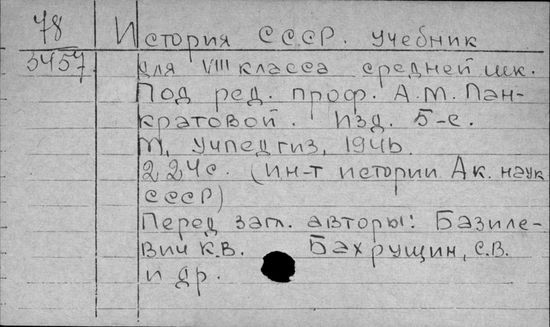 78 История СССР. учебник
3457 для VIII класса средней шк.
Под ред. проф. А.М. Пан-
кратовой. Изд. 5-е.
М, Учпедгиз, 1946
224с. (Ин-т истории Ак. наук
СССР)
Перед загл. авторы: Базиле-
вич К.В. Бахрущин, С.В.
и др.